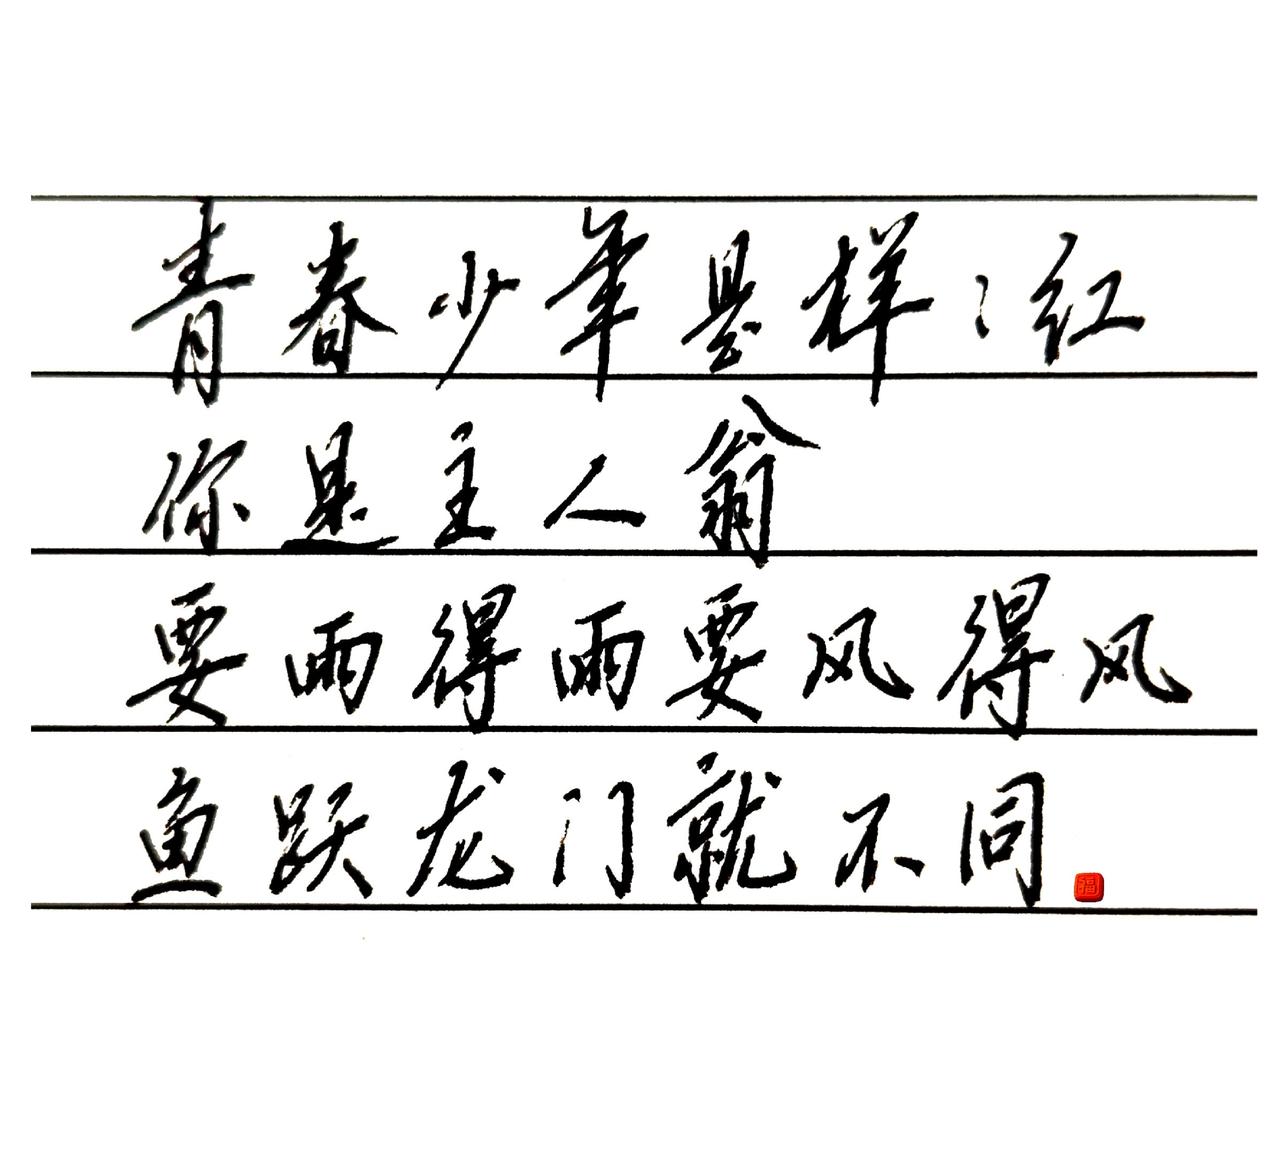 青春少年是样样红
你是主人翁
要雨得雨要风得风
鱼跃龙门就不同
福